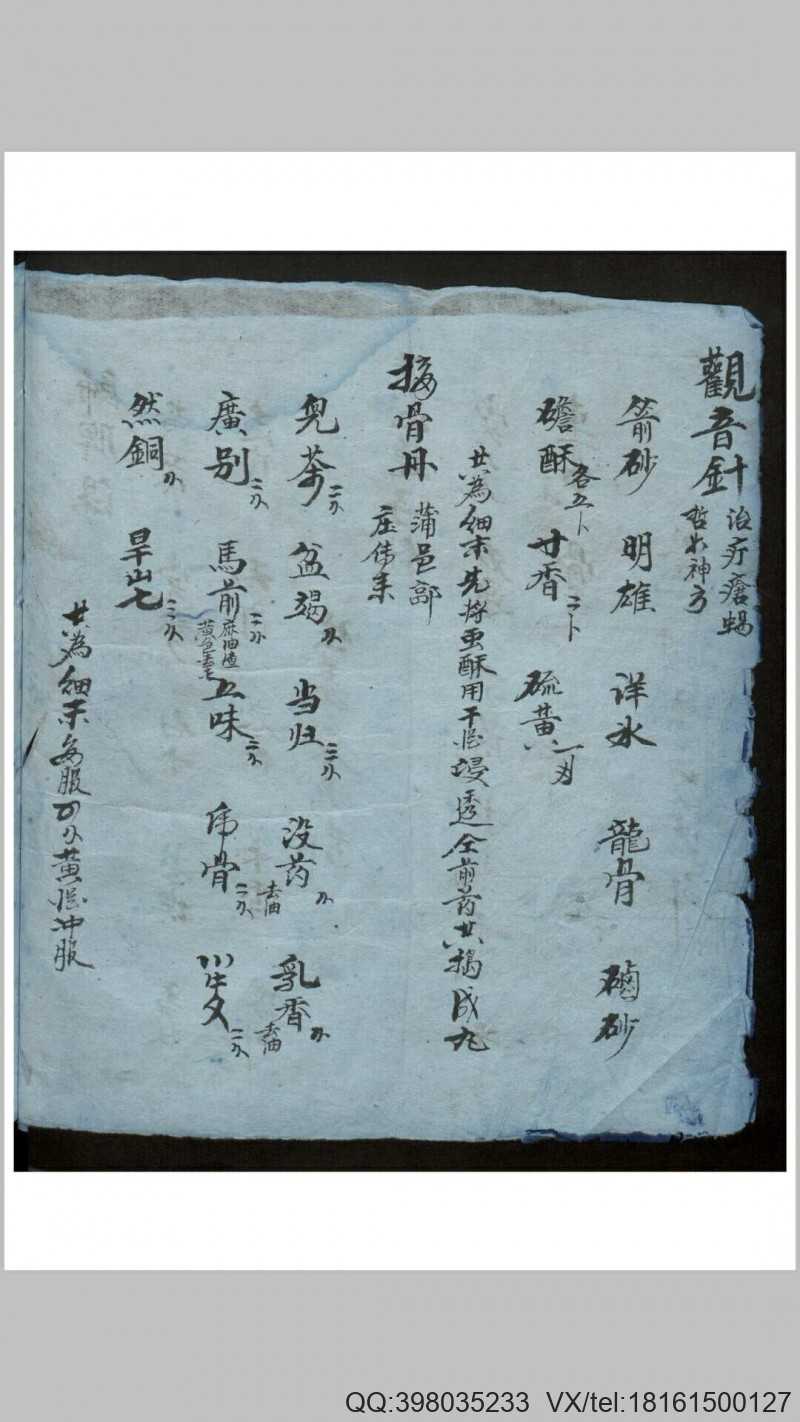 觀音針 治疔瘡蝎
哲水神方
箭砂 明雄 洋水 龍骨 硇砂
礦酥 各五卜 廿香 二卜 硫黄 一
共為細末先将虫酥用干 浸透 前药共搗成丸
接骨丹 蒲邑部
庄传来
兒茶 二分 盆竭 分 当归 三分 没药 去油 分 乳香 去油 分
廣别 二分 馬前 二分 麻油 五味 二分 虎骨 二分 川牛夕 二分
然銅 分 旱山七 三分
共為細末每服 分黄 冲服
QQ:398035233 VX/tel:18161500127